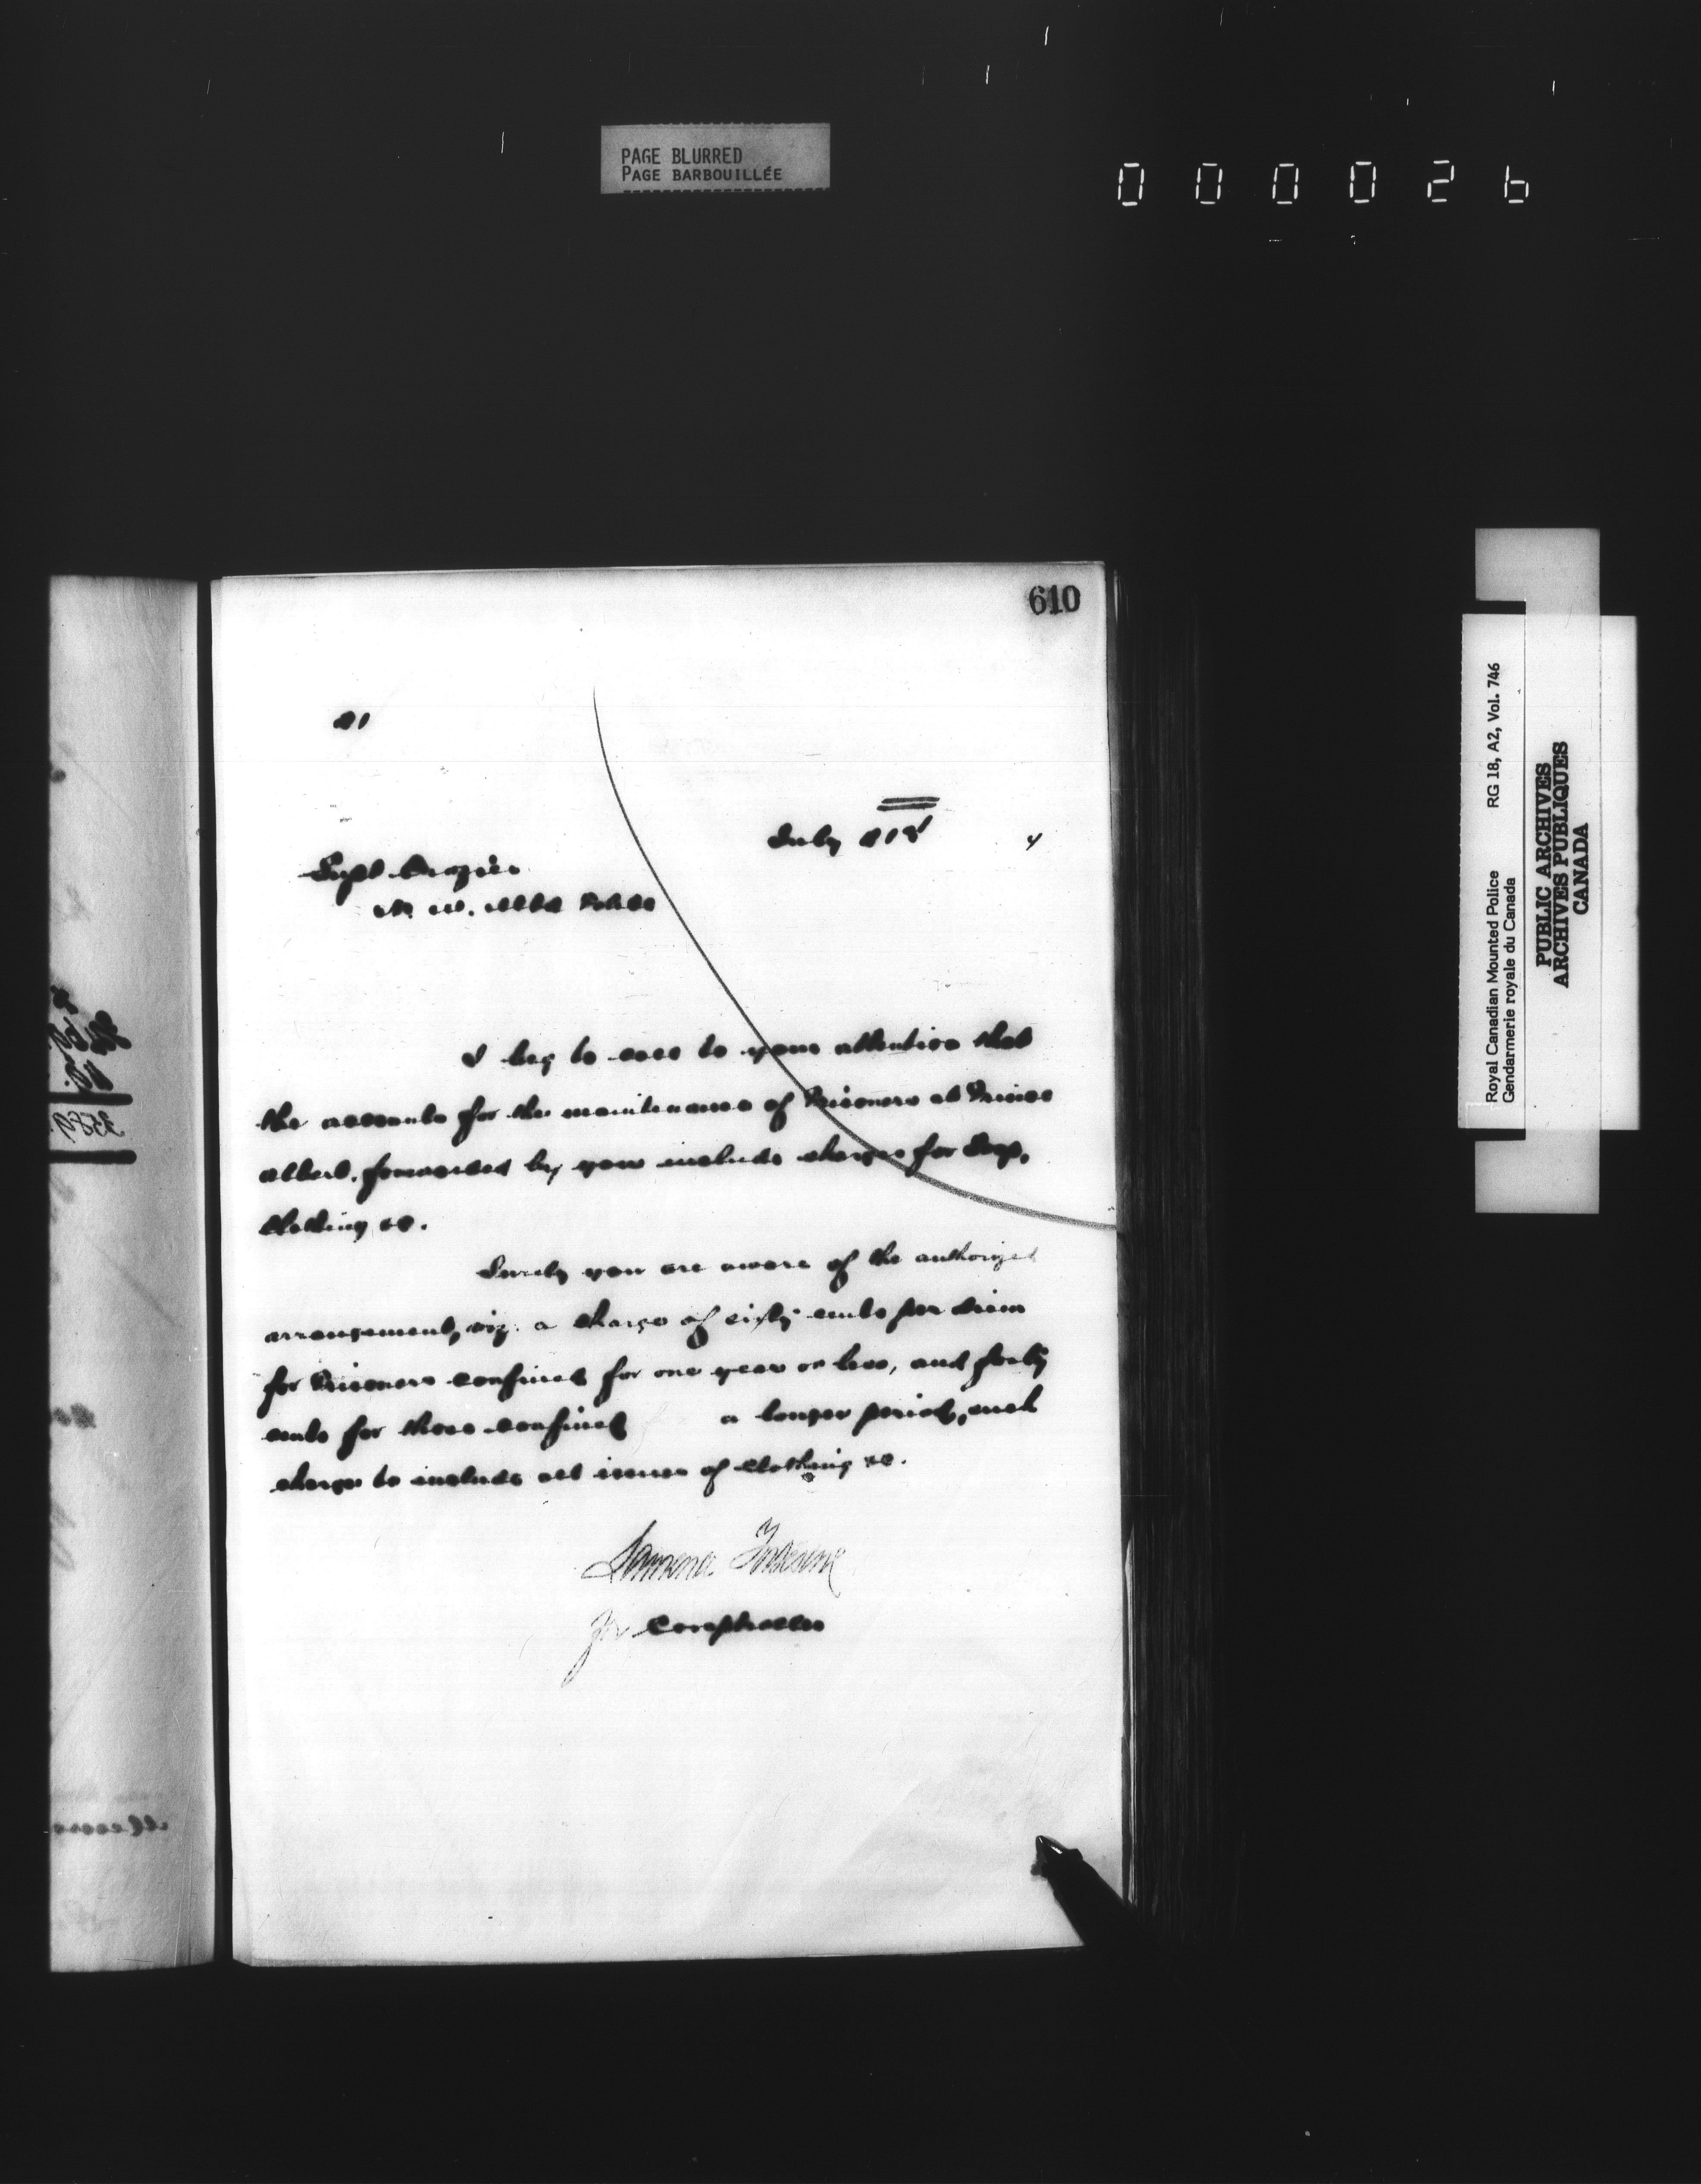 PAGE BLURRED
PAGE BARBOUILLÉE
000026
610
21
July 21st 4
Supt Crozier
N. W. Mtd Police
I beg to call to your attention that
the accounts for the maintenance of Prisoners at Prince
Albert, forwarded by you include charges for Soap,
Clothing &c.
Surely you are aware of the authorized
arrangement, viz. a charge of sixty cents per diem
for Prisoners confined for one year or less, and forty
cents for those confined a longer period, such
charges to include all issues of Clothing &c.
for Comptroller
Royal Canadian Mounted Police RG 18, A2, Vol. 746
Gendarmerie royale du Canada
PUBLIC ARCHIVES
ARCHIVES PUBLIQUES
CANADA